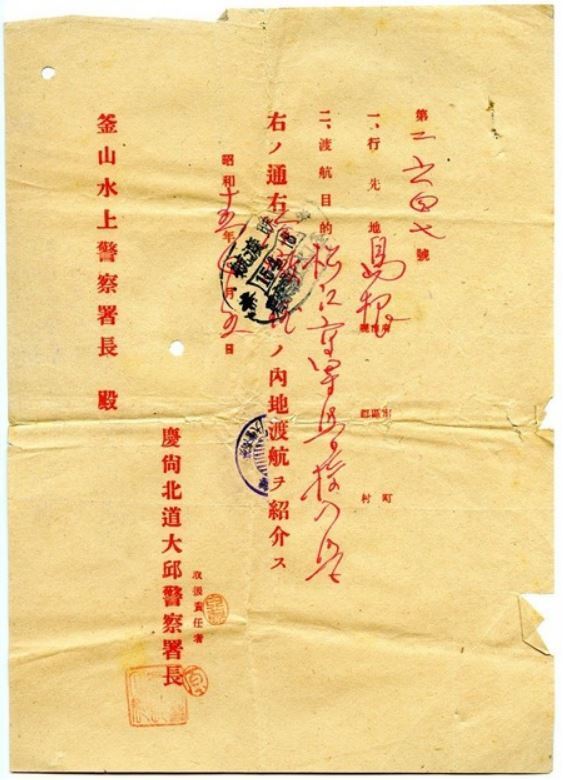 第二六四七號
一、行先地 島根 縣 市區郡 町村
二、渡航目的 松江高等學校入學
右ノ通右 ノ內地渡航ヲ紹介ス
昭和十五年 月五日
取扱責任者
慶尙北道大邱警察署長
釜山水上警察署長 殿
15.4.18